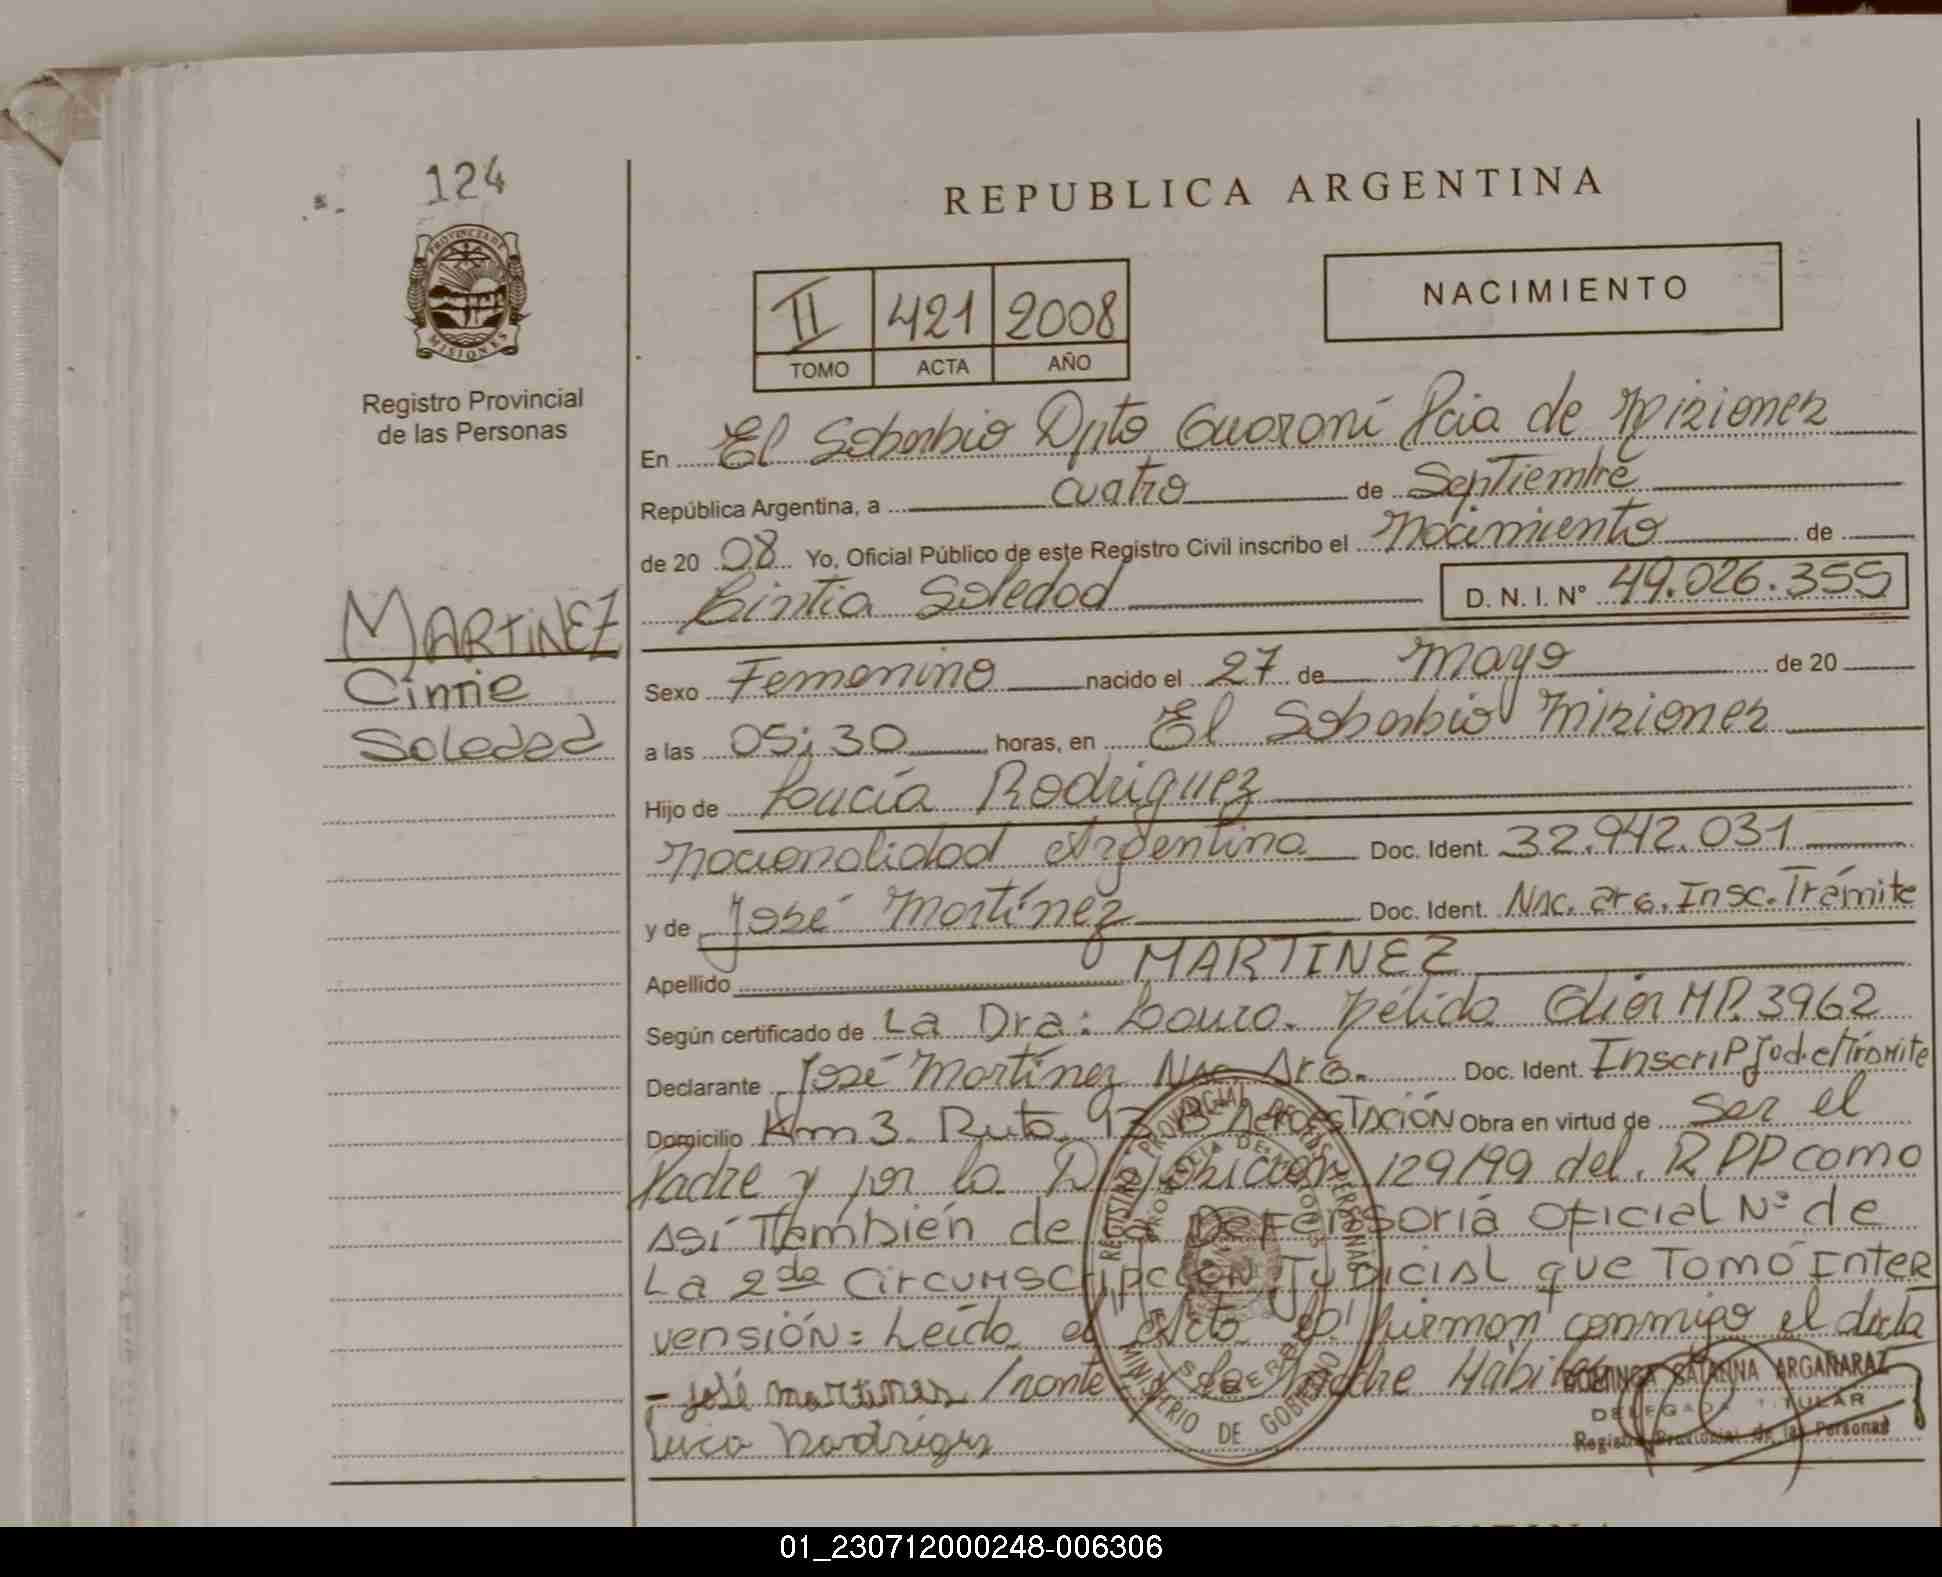 124
REPUBLICA ARGENTINA
PROVINCIA DE
MISIONES
Registro Provincial
de las Personas
II 421 2008
TOMO ACTA AÑO
NACIMIENTO
En El Soberbio Dpto Guaraní Pcia de Misiones
República Argentina, a cuatro de Septiembre
de 20 08 Yo, Oficial Público de este Registro Civil inscribo el Nacimiento de
Cintia Soledad D. N. I. Nº 49.026.355
MARTINEZ
Cintia
Soledad
Sexo Femenino nacido el 27 de Mayo de 20
a las 05:30 horas, en El Soberbio Misiones
Hijo de Lucía Rodriguez
nacionalidad Argentina Doc. Ident. 32.942.031
y de José Martínez Doc. Ident. Nac. arg. Insc. Trámite
Apellido MARTINEZ
Según certificado de La Dra: Lauro. Nélida MP. 3962
Declarante José Martínez Nac Arg. Doc. Ident. Inscrip
Domicilio Km 3 Ruta 13 Bº Aeroestación Obra en virtud de ser el
Padre y por la Disposición 129/99 del. RPP como
así También de la Defensoría Oficial Nº de
La 2da Circunscripción Judicial que Tomó Inter
vensión = Leída el acta la firman conmigo el decla
- José martines /rante y la Madre Habil
Luca Rodrigues
REGISTRO PROVINCIAL DE LAS PERSONAS
PROVINCIA DE MISIONES
MINISTERIO DE GOBIERNO
DOMINGA CATALINA ARGAÑARAZ
DELEGADA TITULAR
Registro Provincial de las Personas
01_230712000248-006306